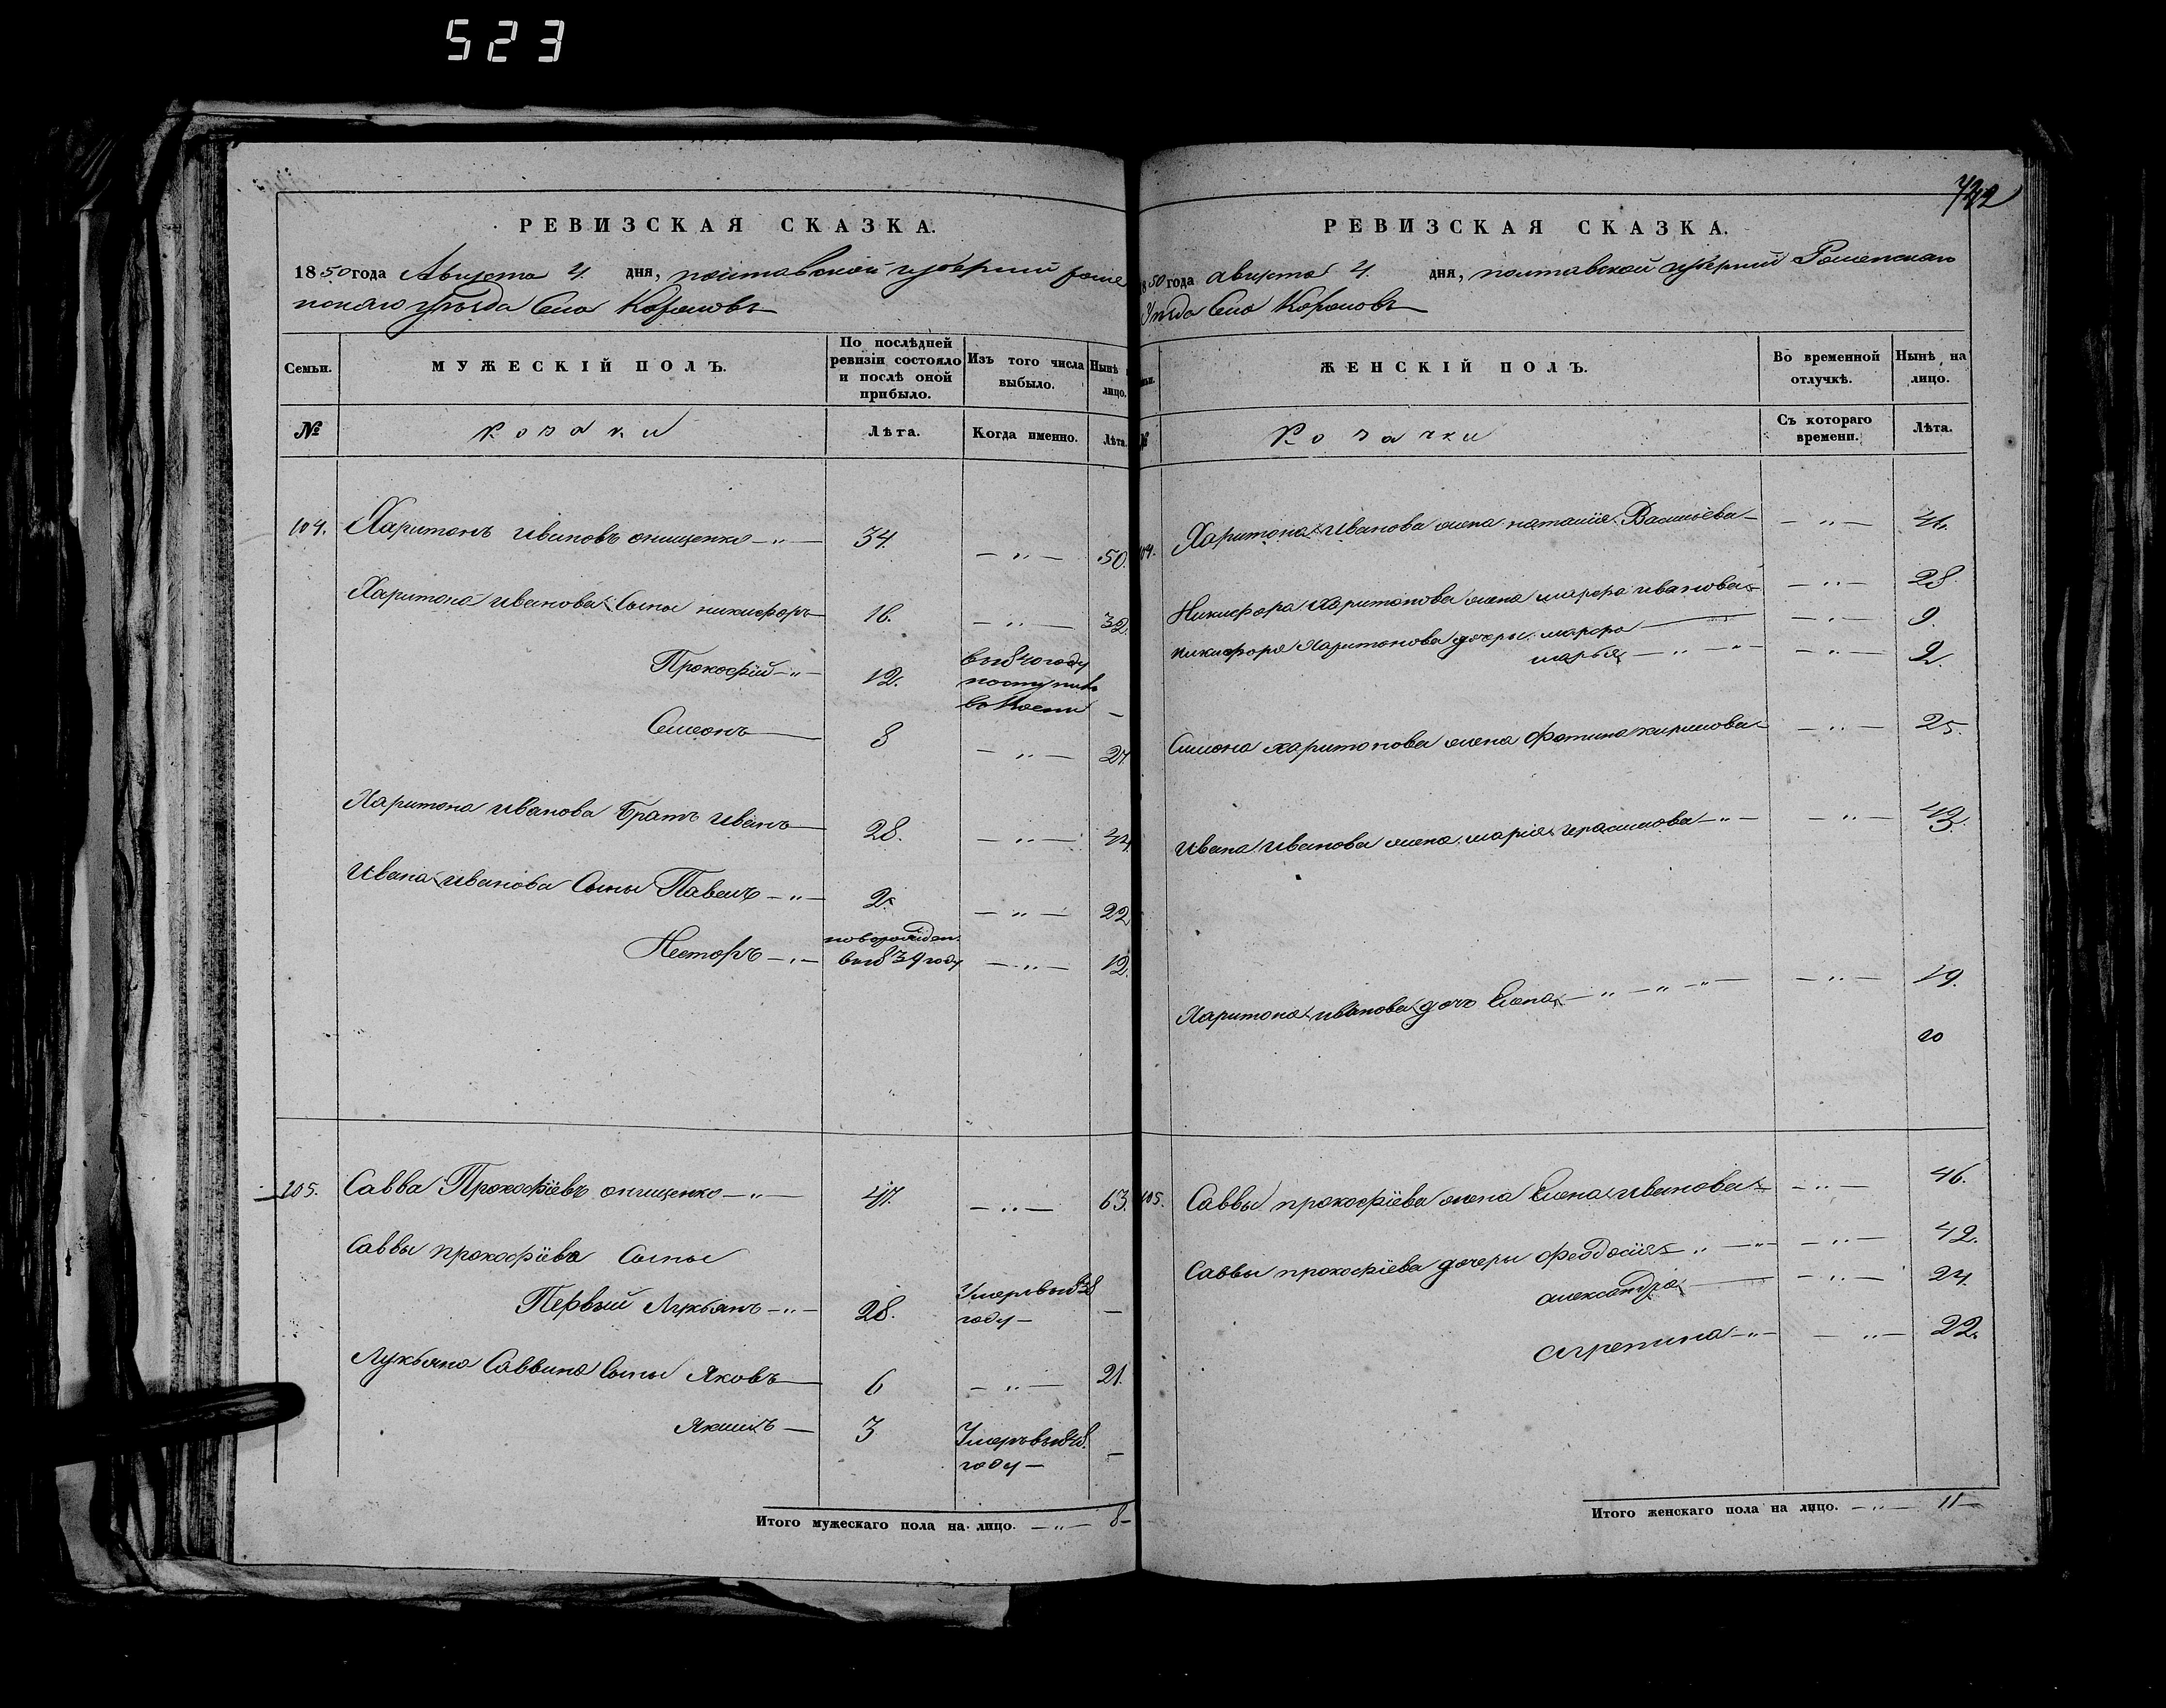 523
РЕВИЗСКАЯ СКАЗКА.
1850 года Августа 4. дня, полтавской губернии роме
нскаго уѣзда Село Корововъ
Семьи.
МУЖЕСКІЙ ПОЛЪ.
По послѣдней ревизіи состояло и послѣ оной прибыло.
Изъ того числа выбыло.
Нынѣ лицо.
№
Козаки
Лѣта.
Когда именно.
Лѣта.
104. Харитонъ Ивановъ онищенко — „ — 34. — „ — 50.
Харитона Иванова Сыны никифоръ — 16. — „ — 32.
Прокофій — „ — 12. въ 1840 году поступилъ —
Симеонъ — 8 — „ — 24
Харитона Иванова Братъ Иванъ — 28. — „ — 44
Ивана Иванова Сыны Павелъ — „ — 2. — „ — 22
Несторъ — „ — новорожден. въ 1839 году — „ — 12.
105. Савва Прокофіевъ онищенко — „ — 47. — „ — 63.
Саввы прокофіева Сыны
Первый Лукьянъ — „ — 28. Умеръ в 1838 году — —
Лукьяна Саввина Сыны Яковъ — 6 — „ — 21.
Якимъ — 3 Умеръ в 1848. году — —
Итого мужескаго пола на лицо. — „ — 8 —
722
РЕВИЗСКАЯ СКАЗКА.
1850 года августа 4. дня, полтавской губерніи Роменскаго
Уѣзда Село Корововъ
ЖЕНСКІЙ ПОЛЪ.
Во временной отлучкѣ.
Нынѣ на лицо.
№
Козачки
Съ котораго времени.
Лѣта.
104. Харитона Иванова жена наталия Васильева — — „ —
Никифора Харитонова жена марфа иванова — „ — 28
никифора Харитонова дочери марфа — — „ — 9.
марья — „ — „ — — „ — 2.
Симиона харитонова жена Фотина кирилова — — „ — 25.
Ивана Иванова жена мария герасимова — „ — — „ — 43.
Харитона иванова дочь Елена — „ — „ — „ — — „ — 19.
20
105. Саввы прокофіева жена Елена Иванова — — „ — 46.
Саввы прокофіева дочери Феодосія — „ — „ — „ — 42.
александра — — „ — 24.
агрепина — „ — — „ — 22.
Итого женскаго пола на лицо. — „ — 11 —